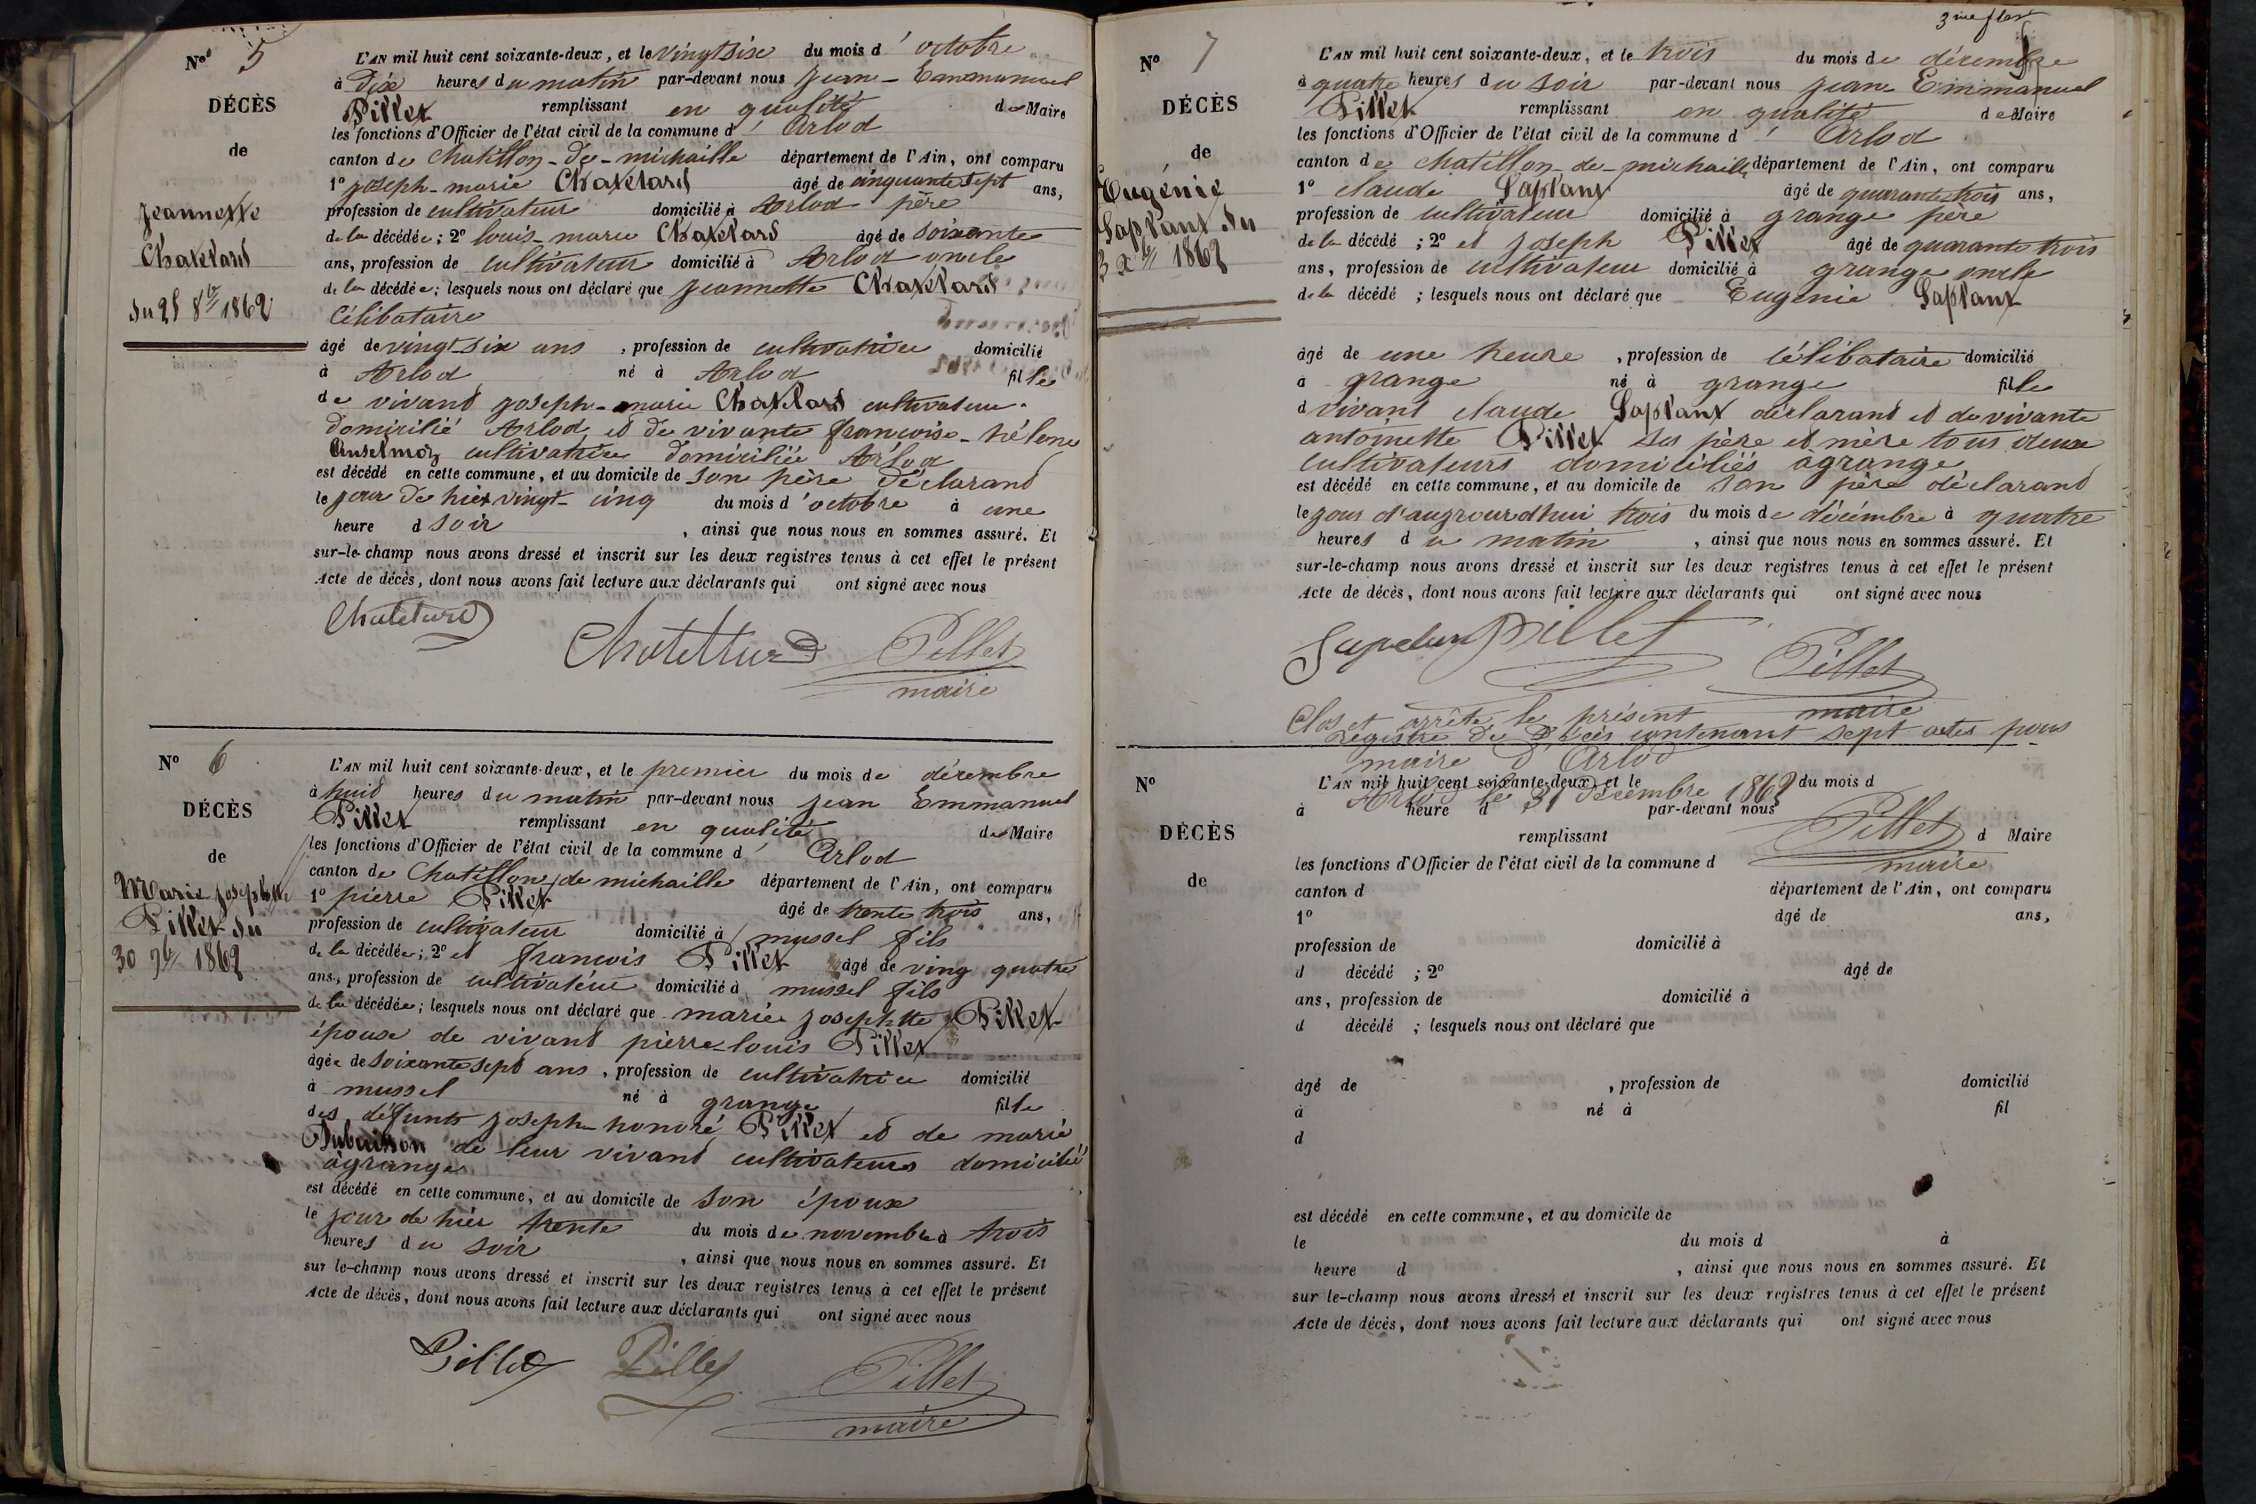 Nos 5
DÉCÈS
de
Jeannette
Chatelard
du 25 8bre 1862
L'AN mil huit cent soixante-deux, et le vingt six du mois d'octobre
à Dix heures du matin par-devant nous Jean-Emmanuel
Pillet remplissant en qualité de Maire
les fonctions d'Officier de l'état civil de la commune d'Arlod
canton de Chatillon-de-michaille département de l'Ain, ont comparu
1° joseph-marie Chatelard âgé de cinquante sept ans,
profession de cultivateur domicilié à Arlod père
de la décédée; 2° louis-marie Chatelard âgé de soixante
ans, profession de cultivateur domicilié à Arlod oncle
de la décédée; lesquels nous ont déclaré que Jeannette Chatelard
Célibataire
âgé de vingt-six ans, profession de cultivatrice domicilié
à Arlod né à Arlod fille
de vivant joseph-marie Chatelard cultivateur
domicilié Arlod et de vivante françoise-hélène
Anselmoz cultivatrice domiciliée Arlod
est décédé en cette commune, et au domicile de son père déclarant
le jour de hier vingt-cinq du mois d'octobre à une
heure d soir, ainsi que nous nous en sommes assuré. Et
sur-le-champ nous avons dressé et inscrit sur les deux registres tenus à cet effet le présent
Acte de décès, dont nous avons fait lecture aux déclarants qui ont signé avec nous
Pillet
maire
N° 6
DÉCÈS
de
Marie josephtte
Pillet du
30 9bre 1862
L'AN mil huit cent soixante-deux, et le premier du mois de décembre
à huit heures du matin par-devant nous jean Emmanuel
Pillet remplissant en qualité de Maire
les fonctions d'Officier de l'état civil de la commune d'Arlod
canton de Chatillon de michaille département de l'Ain, ont comparu
1° pierre Pillet âgé de trente trois ans,
profession de cultivateur domicilié à mussel fils
de la décédée; 2° et francois Pillet âgé de ving quatre
ans, profession de cultivateur domicilié à mussel fils
de la décédée; lesquels nous ont déclaré que marie josephtte Pillet
épouse de vivant pierre-louis Pillet
âgée de soixante sept ans, profession de cultivatrice domicilié
à mussel né à grange fille
des défunts joseph-honoré Pillet et de marie
Dubuisson de leur vivant cultivateurs domicilié
à grange
est décédé en cette commune, et au domicile de son époux
le jour de hier trente du mois de novembre à trois
heures du soir, ainsi que nous nous en sommes assuré. Et
sur le-champ nous avons dressé et inscrit sur les deux registres tenus à cet effet le présent
Acte de décès, dont nous avons fait lecture aux déclarants qui ont signé avec nous
Pillet Pillet Pillet
maire
N° 7
DÉCÈS
de
Eugénie
Laplant du
3 Xbre 1862
L'AN mil huit cent soixante-deux, et le trois du mois de décembre
à quatre heures du soir par-devant nous jean Emmanuel
Pillet remplissant en qualité de Maire
les fonctions d'Officier de l'état civil de la commune d'Arlod
canton de chatillon-de-michaille département de l'Ain, ont comparu
1° claude Laplant âgé de quarante trois ans,
profession de cultivateur domicilié à grange père
de la décédé; 2° et joseph Pillet âgé de quarante trois
ans, profession de cultivateur domicilié à grange oncle
de la décédé; lesquels nous ont déclaré que Eugénie Laplant
âgé de une heure, profession de célibataire domicilié
à grange né à grange fille
d vivant claude Laplant déclarant et de vivante
antoinette Pillet ses père et mère tous deux
cultivateurs domiciliés à grange
est décédé en cette commune, et au domicile de son père déclarant
le jour d'aujourdhui trois du mois de décembre à quatre
heures du matin, ainsi que nous nous en sommes assuré. Et
sur-le-champ nous avons dressé et inscrit sur les deux registres tenus à cet effet le présent
Acte de décès, dont nous avons fait lecture aux déclarants qui ont signé avec nous
Pillet Pillet
maire
Clos et arrêté le présent
registre de Décès contenant sept actes pour
maire d'Arlod
Arlod le 31 décembre 1862
Pillet
maire
N°
DÉCÈS
de
L'AN mil huit cent soixante-deux, et le du mois d
à heure d par-devant nous
remplissant d Maire
les fonctions d'Officier de l'état civil de la commune d
canton d département de l'Ain, ont comparu
1° âgé de ans,
profession de domicilié à
d décédé ; 2° âgé de
ans, profession de domicilié à
d décédé ; lesquels nous ont déclaré que
âgé de , profession de domicilié
à né à fil
d
est décédé en cette commune, et au domicile de
le du mois d à
heure d , ainsi que nous nous en sommes assuré. Et
sur le-champ nous avons dressé et inscrit sur les deux registres tenus à cet effet le présent
Acte de décès, dont nous avons fait lecture aux déclarants qui ont signé avec nous